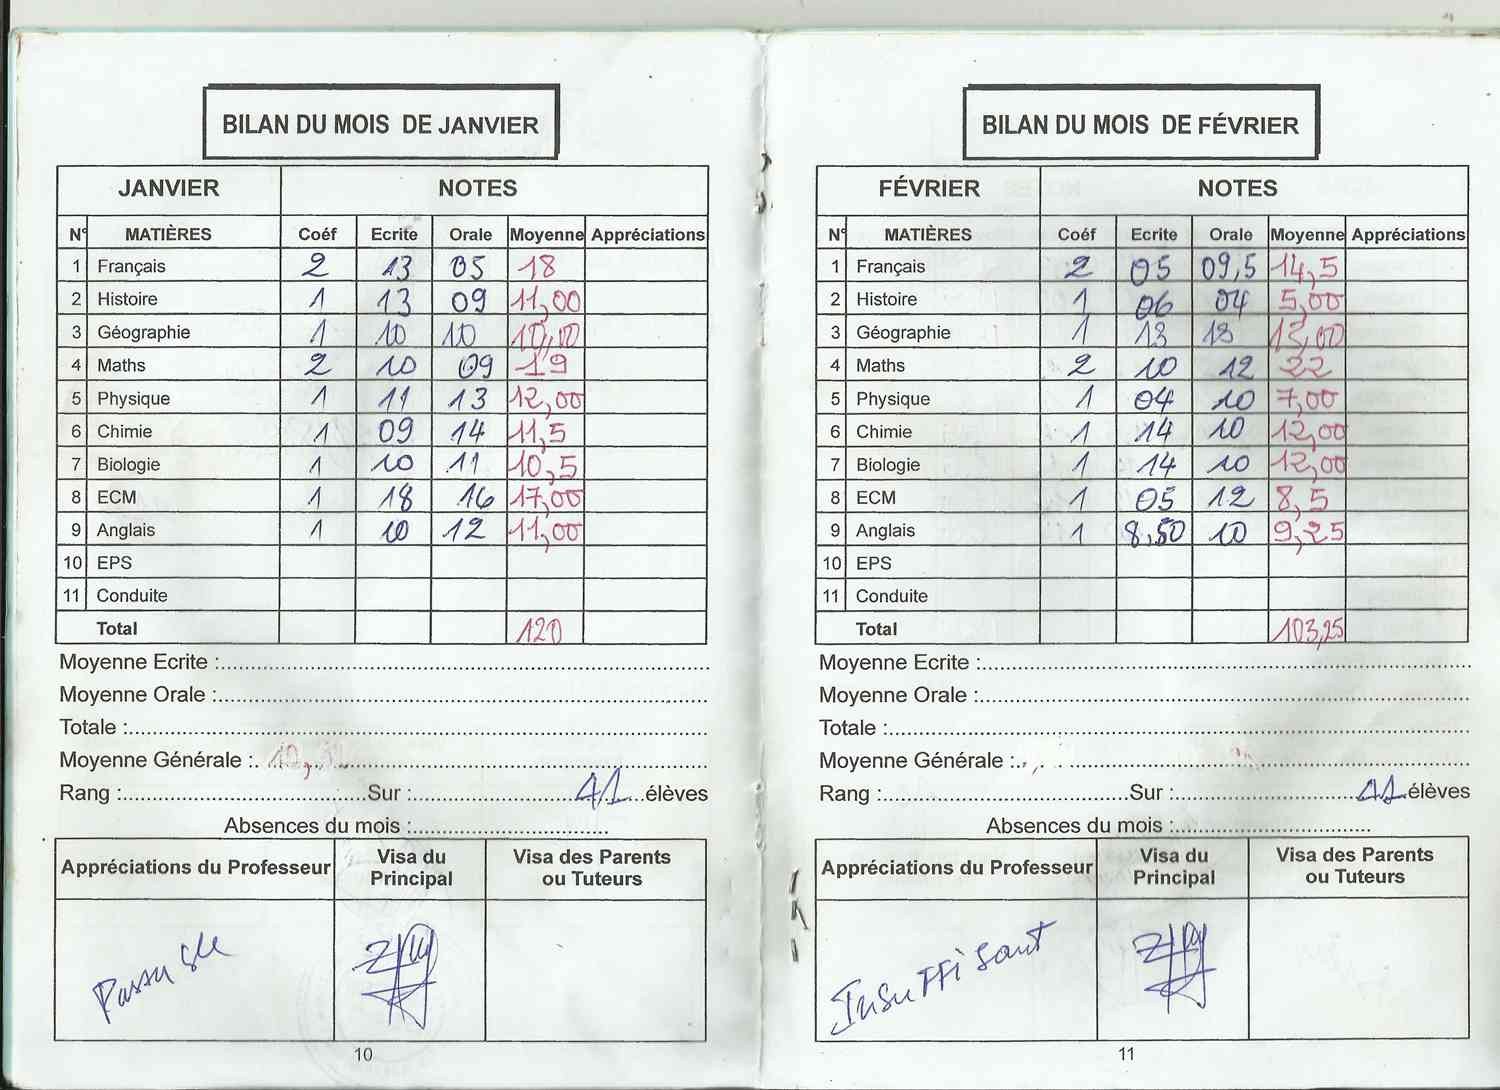 BILAN DU MOIS DE JANVIER
JANVIER NOTES
N° MATIÈRES Coéf Ecrite Orale Moyenne Appréciations
1 Français 2 13 05 18
2 Histoire 1 13 09 11,00
3 Géographie 1 10 10 10,00
4 Maths 2 10 09 19
5 Physique 1 11 13 12,00
6 Chimie 1 09 14 11,5
7 Biologie 1 10 11 10,5
8 ECM 1 18 16 17,00
9 Anglais 1 10 12 11,00
10 EPS
11 Conduite
Total 120
Moyenne Ecrite :
Moyenne Orale :
Totale :
Moyenne Générale :
Rang : Sur : 41 élèves
Absences du mois :
Appréciations du Professeur Visa du Principal Visa des Parents ou Tuteurs
Passable
10
BILAN DU MOIS DE FÉVRIER
FÉVRIER NOTES
N° MATIÈRES Coéf Ecrite Orale Moyenne Appréciations
1 Français 2 05 09,5 14,5
2 Histoire 1 06 04 5,00
3 Géographie 1 13 13 13,00
4 Maths 2 10 12 22
5 Physique 1 04 10 7,00
6 Chimie 1 14 10 12,00
7 Biologie 1 14 10 12,00
8 ECM 1 05 12 8,5
9 Anglais 1 8,50 10 9,25
10 EPS
11 Conduite
Total 103,25
Moyenne Ecrite :
Moyenne Orale :
Totale :
Moyenne Générale :
Rang : Sur : 41 élèves
Absences du mois :
Appréciations du Professeur Visa du Principal Visa des Parents ou Tuteurs
Insuffisant
11